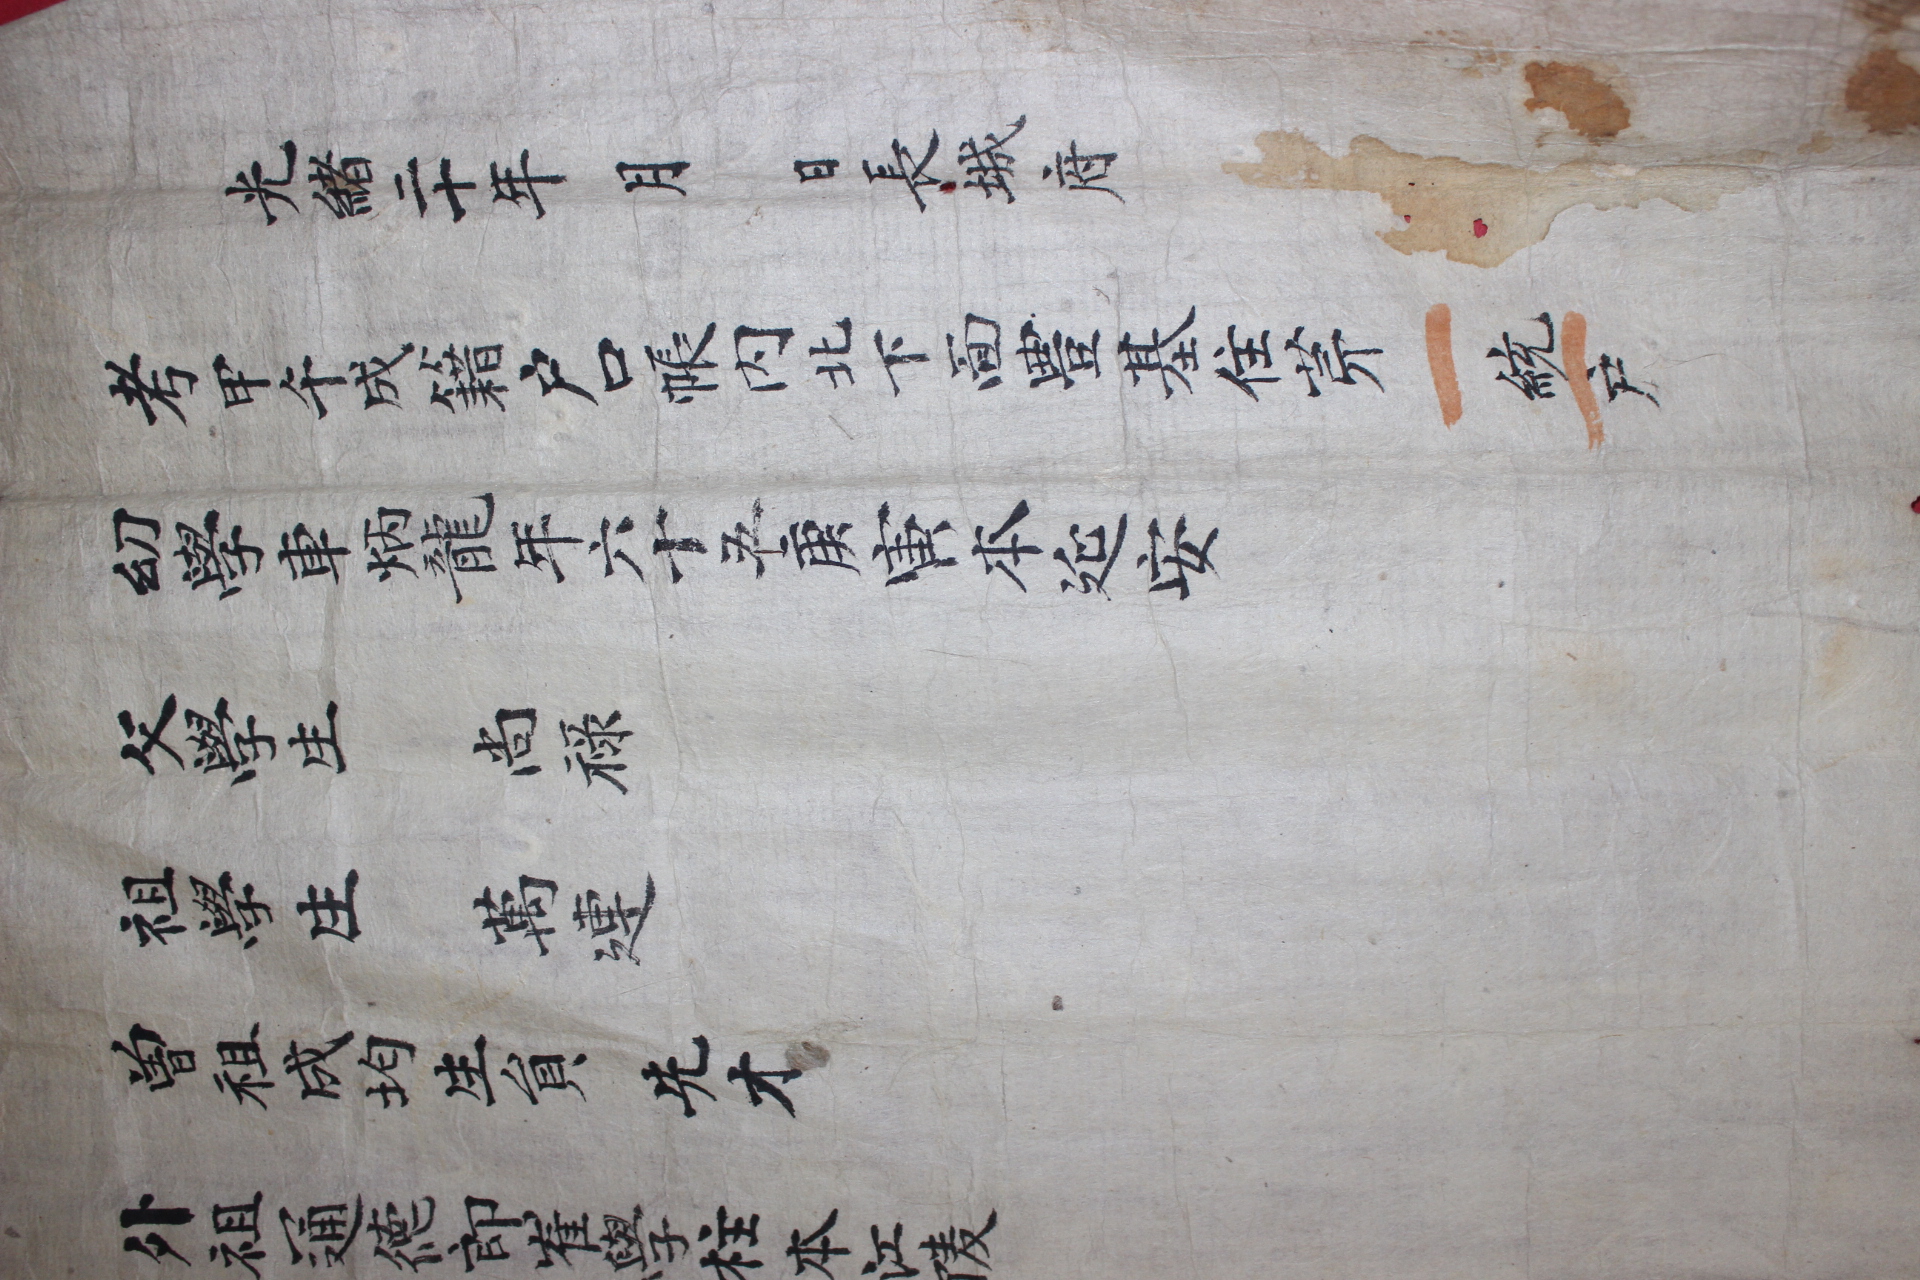 光緖二十年 月 日長城府
考甲午成籍户口帳内北下面豊基住苐 一 統 一 户
幼學車炳龍年六十五庚寅本延安
父學生 尚祿
祖學生 萬運
曽祖成均生員 光才
外祖通德郎崔學柱本江陵